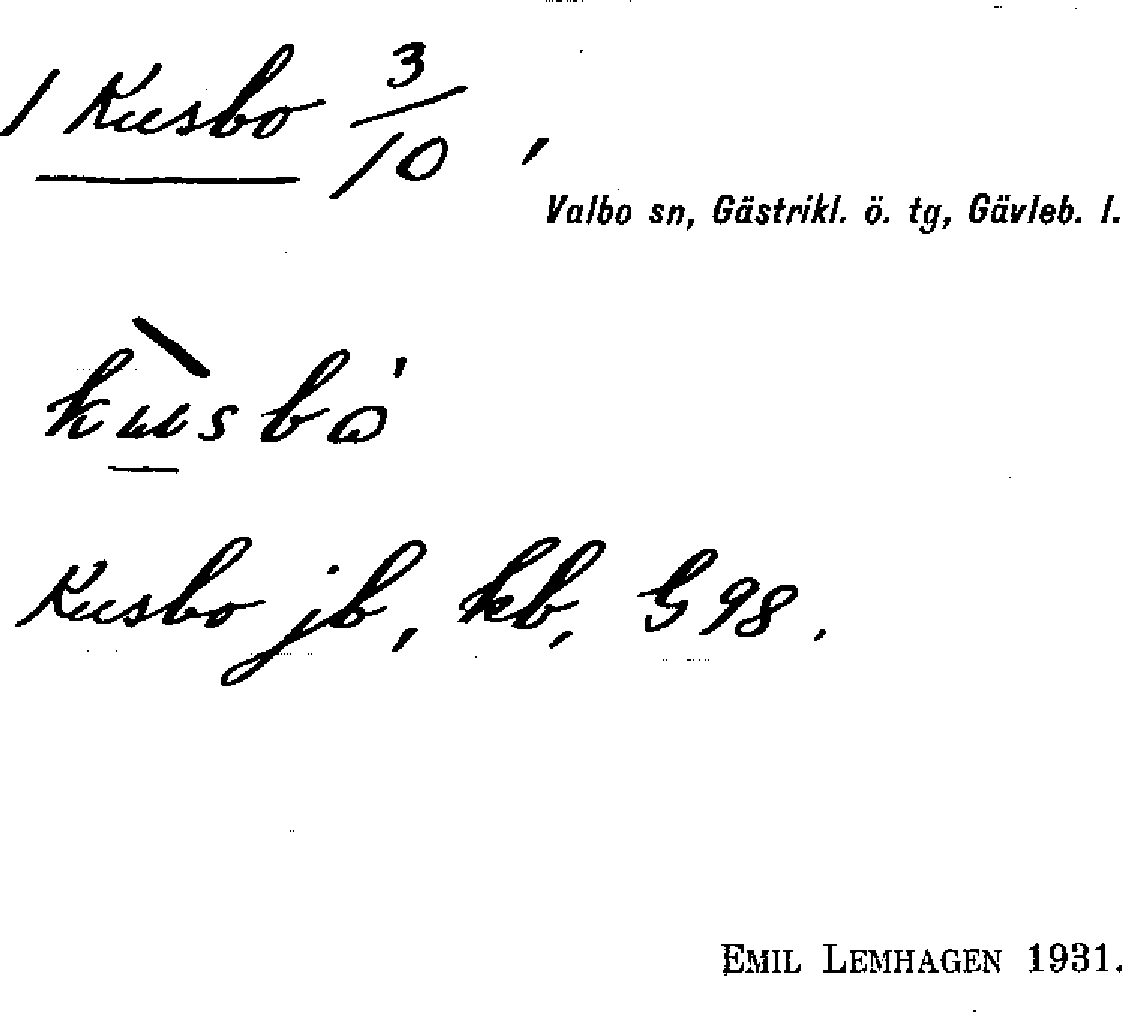 1 Kusbo 3/10,
Valbo sn, Gästrikl. ö. tg, Gävleb. l.
kùsbo'
Kusbo jb, kb, G 98.
EMIL LEMHAGEN 1931.